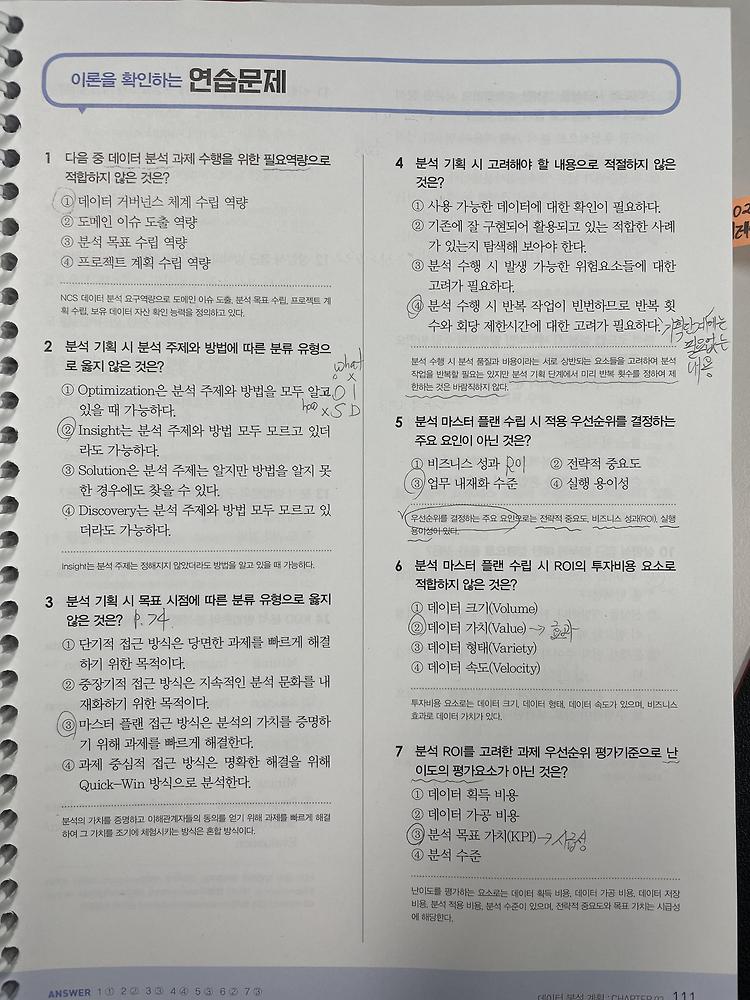 이론을 확인하는 연습문제
1 다음 중 데이터 분석 과제 수행을 위한 필요역량으로
적합하지 않은 것은?
① 데이터 거버넌스 체계 수립 역량
② 도메인 이슈 도출 역량
③ 분석 목표 수립 역량
④ 프로젝트 계획 수립 역량
NCS 데이터 분석 요구역량으로 도메인 이슈 도출, 분석 목표 수립, 프로젝트 계
획 수립, 보유 데이터 자산 확인 능력을 정의하고 있다.
2 분석 기획 시 분석 주제와 방법에 따른 분류 유형으
로 옳지 않은 것은?
what
o x
① Optimization은 분석 주제와 방법을 모두 알고
있을 때 가능하다.
o O I
how x S D
② Insight는 분석 주제와 방법 모두 모르고 있더
라도 가능하다.
③ Solution은 분석 주제는 알지만 방법을 알지 못
한 경우에도 찾을 수 있다.
④ Discovery는 분석 주제와 방법 모두 모르고 있
더라도 가능하다.
Insight는 분석 주제는 정해지지 않았더라도 방법을 알고 있을 때 가능하다.
3 분석 기획 시 목표 시점에 따른 분류 유형으로 옳지
않은 것은? P.74
① 단기적 접근 방식은 당면한 과제를 빠르게 해결
하기 위한 목적이다.
② 중장기적 접근 방식은 지속적인 분석 문화를 내
재화하기 위한 목적이다.
③ 마스터 플랜 접근 방식은 분석의 가치를 증명하
기 위해 과제를 빠르게 해결한다.
④ 과제 중심적 접근 방식은 명확한 해결을 위해
Quick-Win 방식으로 분석한다.
분석의 가치를 증명하고 이해관계자들의 동의를 얻기 위해 과제를 빠르게 해결
하여 그 가치를 조기에 체험시키는 방식은 혼합 방식이다.
4 분석 기획 시 고려해야 할 내용으로 적절하지 않은
것은?
① 사용 가능한 데이터에 대한 확인이 필요하다.
② 기존에 잘 구현되어 활용되고 있는 적합한 사례
가 있는지 탐색해 보아야 한다.
③ 분석 수행 시 발생 가능한 위험요소들에 대한
고려가 필요하다.
④ 분석 수행 시 반복 작업이 빈번하므로 반복 횟
수와 회당 제한시간에 대한 고려가 필요하다.
기획단계에는
필요없는
내용
분석 수행 시 분석 품질과 비용이라는 서로 상반되는 요소들을 고려하여 분석
작업을 반복할 필요는 있지만 분석 기획 단계에서 미리 반복 횟수를 정하여 제
한하는 것은 바람직하지 않다.
5 분석 마스터 플랜 수립 시 적용 우선순위를 결정하는
주요 요인이 아닌 것은?
① 비즈니스 성과 ROI ② 전략적 중요도
③ 업무 내재화 수준 ④ 실행 용이성
우선순위를 결정하는 주요 요인으로는 전략적 중요도, 비즈니스 성과(ROI), 실행
용이성이 있다.
6 분석 마스터 플랜 수립 시 ROI의 투자비용 요소로
적합하지 않은 것은?
① 데이터 크기(Volume)
② 데이터 가치(Value) → 효과
③ 데이터 형태(Variety)
④ 데이터 속도(Velocity)
투자비용 요소로는 데이터 크기, 데이터 형태, 데이터 속도가 있으며, 비즈니스
효과로 데이터 가치가 있다.
7 분석 ROI를 고려한 과제 우선순위 평가기준으로 난
이도의 평가요소가 아닌 것은?
① 데이터 획득 비용
② 데이터 가공 비용
③ 분석 목표 가치(KPI) → 시급성
④ 분석 수준
난이도를 평가하는 요소로는 데이터 획득 비용, 데이터 가공 비용, 데이터 저장
비용, 분석 적용 비용, 분석 수준이 있으며, 전략적 중요도와 목표 가치는 시급성
에 해당한다.
ANSWER 1 ① 2 ② 3 ③ 4 ④ 5 ③ 6 ② 7 ③
데이터 분석 계획 : CHAPTER 02 111
02